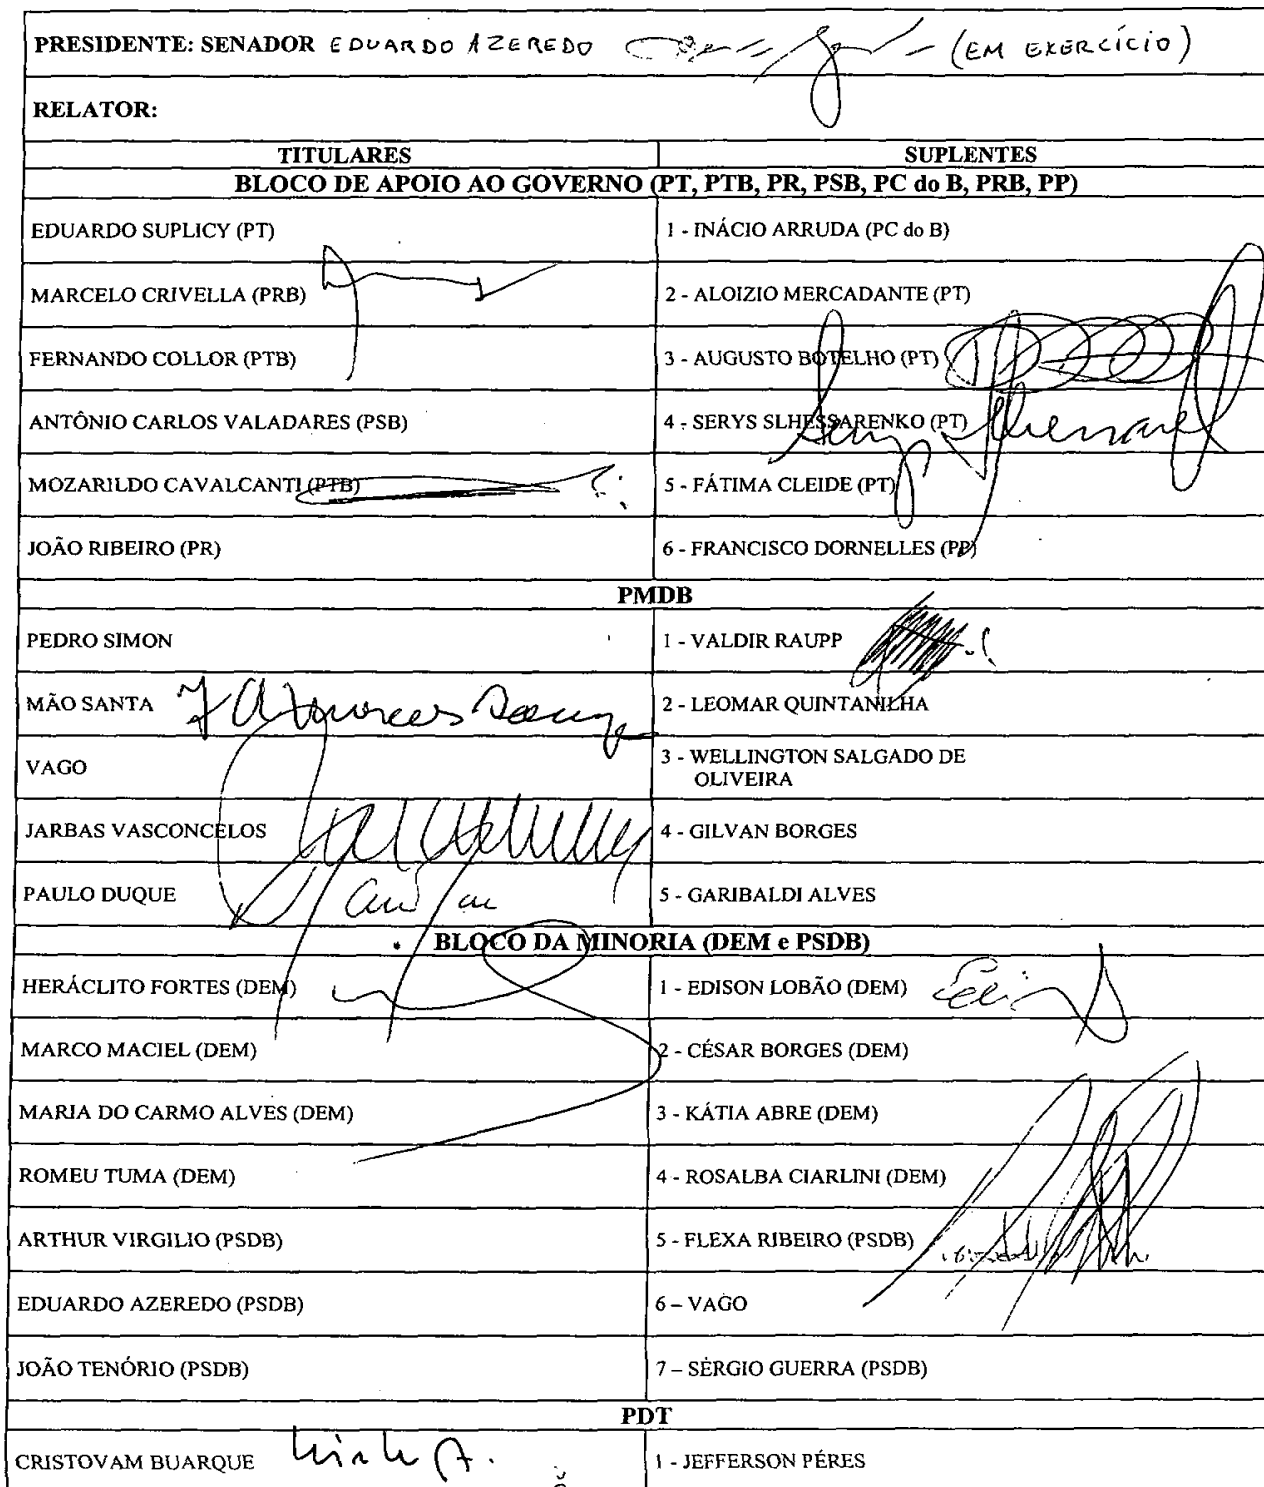 PRESIDENTE: SENADOR EDUARDO AZEREDO (EM EXERCÍCIO)
RELATOR:
TITULARES SUPLENTES
BLOCO DE APOIO AO GOVERNO (PT, PTB, PR, PSB, PC do B, PRB, PP)
EDUARDO SUPLICY (PT) 1 - INÁCIO ARRUDA (PC do B)
MARCELO CRIVELLA (PRB) 2 - ALOIZIO MERCADANTE (PT)
FERNANDO COLLOR (PTB) 3 - AUGUSTO BOTELHO (PT)
ANTÔNIO CARLOS VALADARES (PSB) 4 - SERYS SLHESSARENKO (PT)
MOZARILDO CAVALCANTI (PTB) 5 - FÁTIMA CLEIDE (PT)
JOÃO RIBEIRO (PR) 6 - FRANCISCO DORNELLES (PP)
PMDB
PEDRO SIMON 1 - VALDIR RAUPP
MÃO SANTA 2 - LEOMAR QUINTANILHA
VAGO 3 - WELLINGTON SALGADO DE
OLIVEIRA
JARBAS VASCONCELOS 4 - GILVAN BORGES
PAULO DUQUE 5 - GARIBALDI ALVES
BLOCO DA MINORIA (DEM e PSDB)
HERÁCLITO FORTES (DEM) 1 - EDISON LOBÃO (DEM)
MARCO MACIEL (DEM) 2 - CÉSAR BORGES (DEM)
MARIA DO CARMO ALVES (DEM) 3 - KÁTIA ABRE (DEM)
ROMEU TUMA (DEM) 4 - ROSALBA CIARLINI (DEM)
ARTHUR VIRGILIO (PSDB) 5 - FLEXA RIBEIRO (PSDB)
EDUARDO AZEREDO (PSDB) 6 – VAGO
JOÃO TENÓRIO (PSDB) 7 – SÉRGIO GUERRA (PSDB)
PDT
CRISTOVAM BUARQUE 1 - JEFFERSON PÉRES